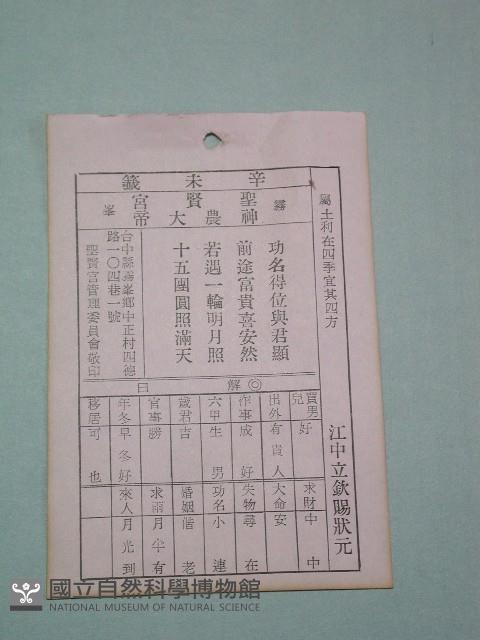 辛未籤
霧峯
聖賢宮
神農大帝
屬土利在四季宜其四方
江中立欽賜狀元
功名得位與君顯
前途富貴喜安然
若遇一輪明月照
十五團圓照滿天
台中縣霧峯鄉中正村四德
路一〇四巷一號
聖賢宮管理委員會敬印
◎解曰
買男兒 好
出外 有貴人
作事 成好
六甲 生男
歲君 吉
官事 勝
年冬 早冬好
移居 可也
求財 中中
大命 安
失物 尋在
功名 小連
婚姻 偕老
求雨 月半有
來人 月光到
國立自然科學博物館
NATIONAL MUSEUM OF NATURAL SCIENCE